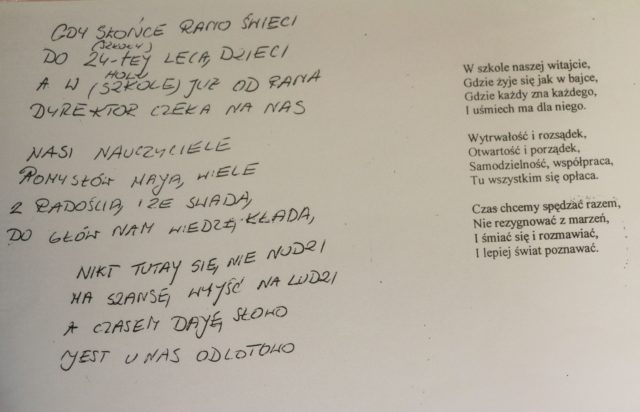 GDY SŁOŃCE RANO ŚWIECI
(SZKOŁY)
DO 24-TEJ LECĄ DZIECI
HOLU
A W (SZKOLE) JUŻ OD RANA
DYREKTOR CZEKA NA NAS
NASI NAUCZYCIELE
POMYSŁÓW MAJĄ WIELE
Z RADOŚCIĄ I ZE SWADĄ,
DO GŁÓW NAM WIEDZĘ KŁADĄ,
NIKT TUTAJ SIĘ NIE NUDZI
MA SZANSĘ WYJŚĆ NA LUDZI
A CZASEM DAJĘ SŁOWO
JEST U NAS ODLOTOWO
W szkole naszej witajcie,
Gdzie żyje się jak w bajce,
Gdzie każdy zna każdego,
I uśmiech ma dla niego.
Wytrwałość i rozsądek,
Otwartość i porządek,
Samodzielność, współpraca,
Tu wszystkim się opłaca.
Czas chcemy spędzać razem,
Nie rezygnować z marzeń,
I śmiać się i rozmawiać,
I lepiej świat poznawać.